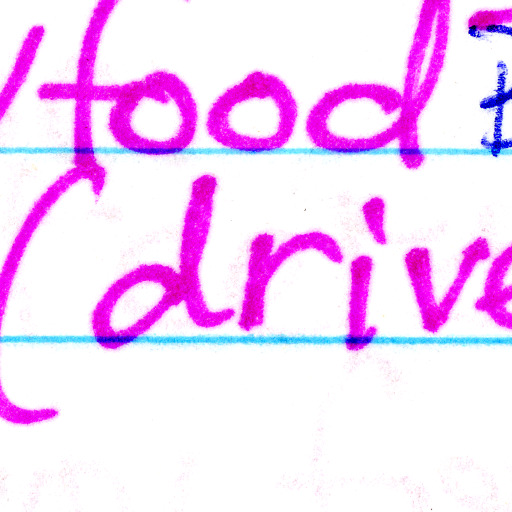 /food
(drive